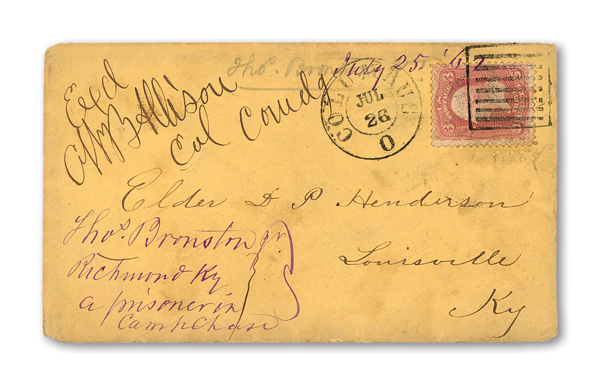 Tho.s Bronston
July 25 '62
Exd
C W B Allison
Col Comdg
COLUMBUS
JUL
26
O
3 3
Elder D P Henderson
Louisville
Ky
Tho.s Bronston jr.
Richmond Ky
a prisoner in
Camp Chase